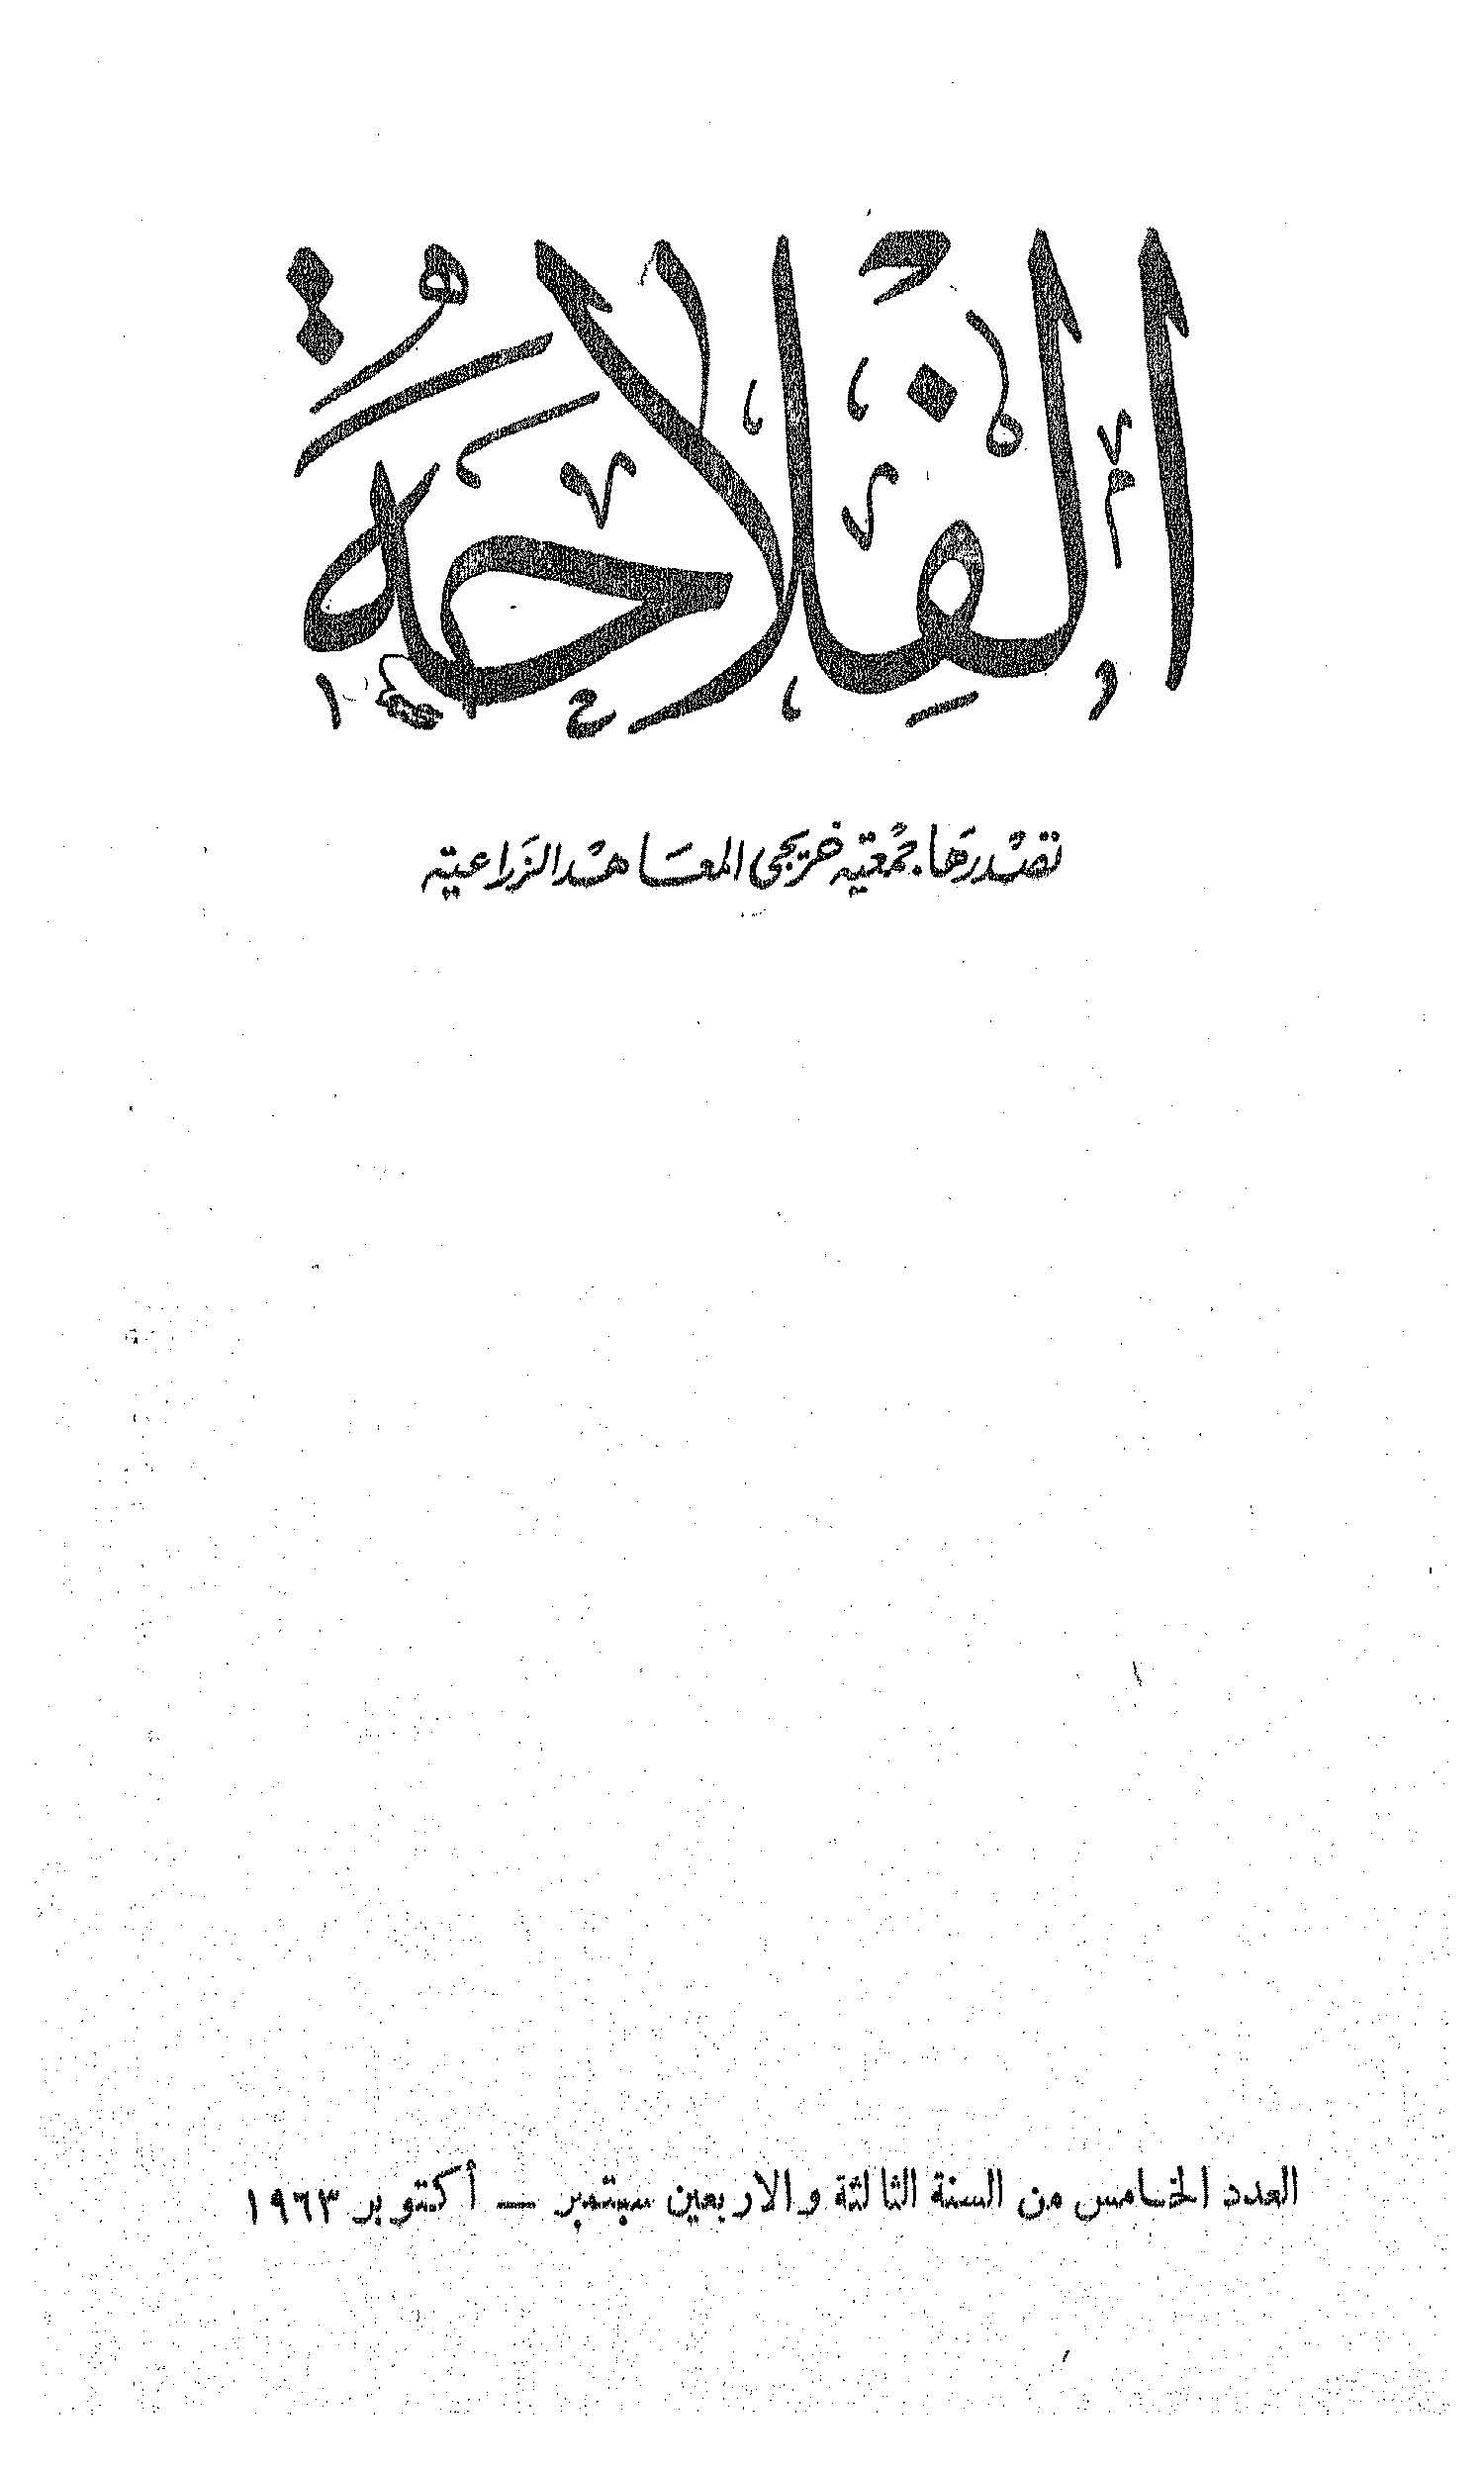 الفلاحة
تصدرها جمعية خريجى المعاهد الزراعية
العدد الخامس من السنة الثالثة والاربعين سبتمبر — أكتوبر ١٩٦٣